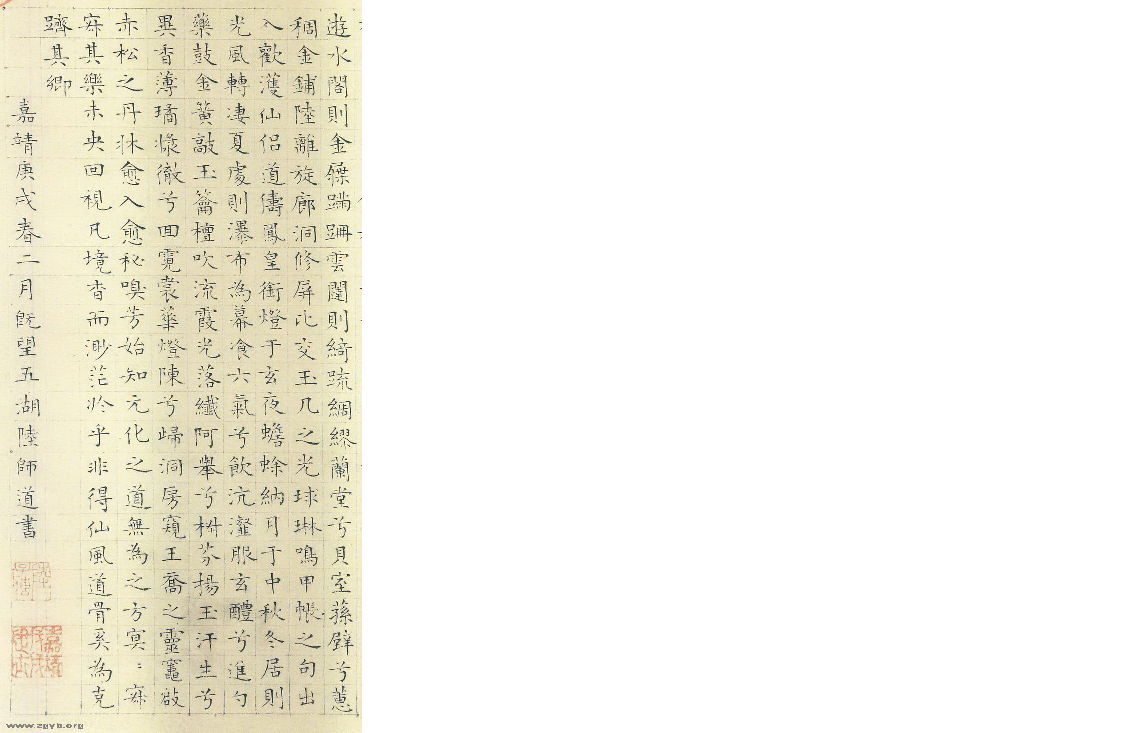 遊水閣則金鏁蹣跚雲闥則綺疏綢繆蘭堂兮貝室蓀壁兮蕙
稠金鋪陸離旋廊洞修屏比交玉几之光球琳鳴甲帳之句出
入歡濩仙侶道儔鳳皇銜燈于玄夜蟾蜍納月于中秋冬居則
光風轉凄夏處則瀑布為幕飡六氣兮飲沆瀣服玄醴兮進勺
藥鼓金簧敲玉籥檀吹流霞光落纖阿舉兮桁芬揚玉汗生兮
異香薄璚漿徹兮回霓裳華燈陳兮歸洞房窺王喬之靈竈啟
赤松之丹牀愈入愈秘嗅芳始知元化之道無為之方冥〻寂
寂其樂未央回視凡境杳而渺茫於乎非得仙風道骨奚為克
躋其鄉
嘉靖庚戌春二月既望五湖陸師道書
www.zgyb.org